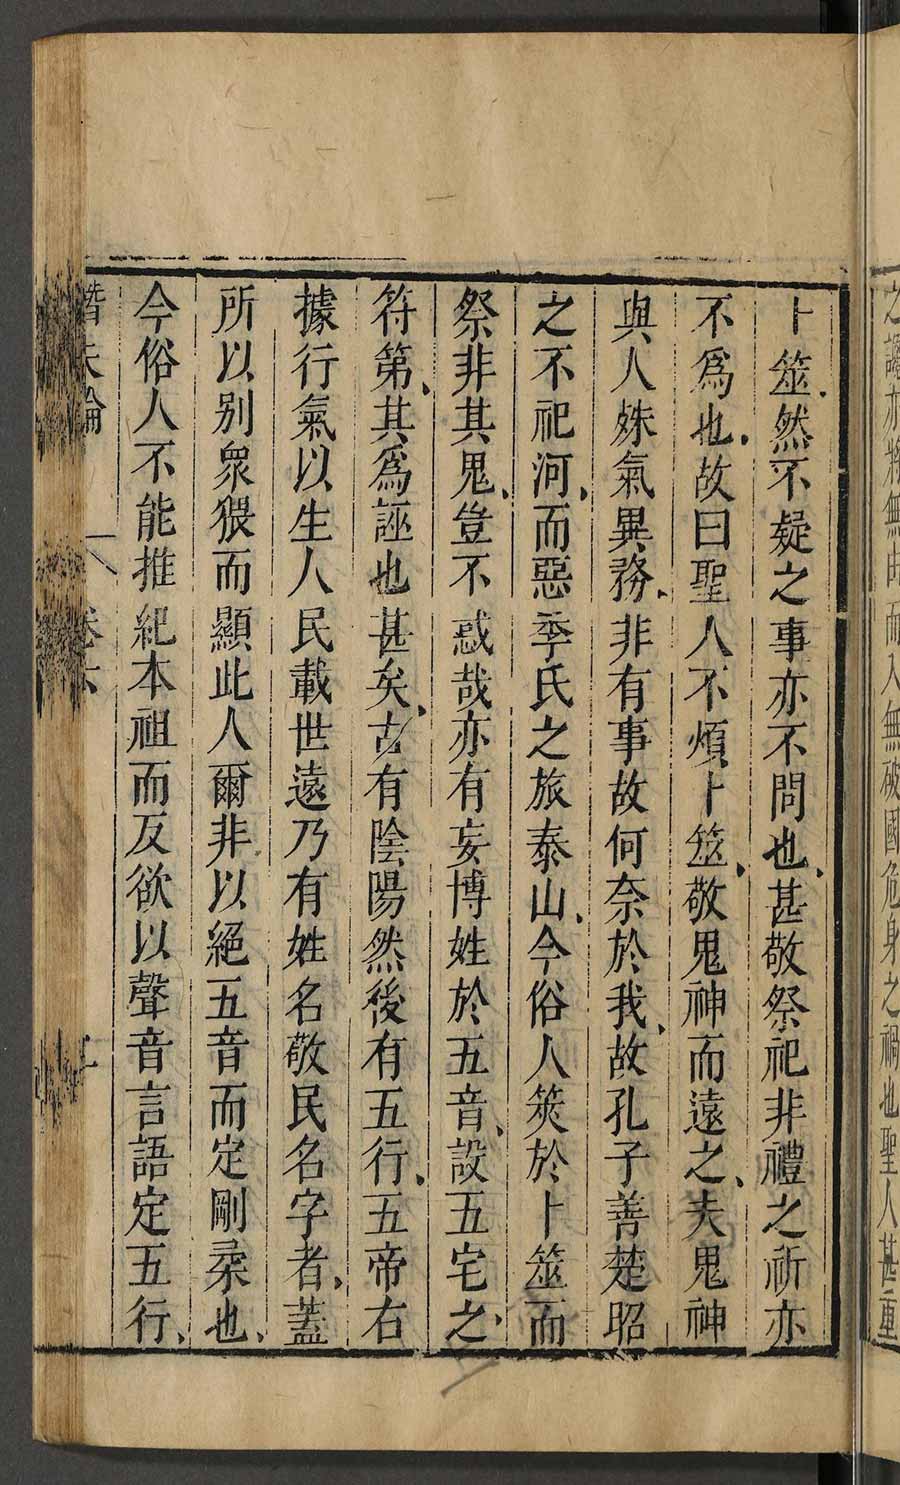 之譴亦將無由而入無破國危身之禍也聖人甚重
卜筮然不疑之事亦不問也甚敬祭祀非禮之祈亦
不爲也故曰聖人不煩卜筮敬鬼神而遠之夫鬼神
與人殊氣異務非有事故何奈於我故孔子善楚昭
之不祀河而惡季氏之旅泰山今俗人筴於卜筮而
祭非其鬼豈不惑哉亦有妄博姓於五音設五宅之
符第其爲誣也甚矣古有陰陽然後有五行五帝右
據行氣以生人民載世遠乃有姓名敬民名字者蓋
所以别衆猥而顯此人爾非以絕五音而定剛柔也
今俗人不能推紀本祖而反欲以聲音言語定五行
潛夫論 卷六